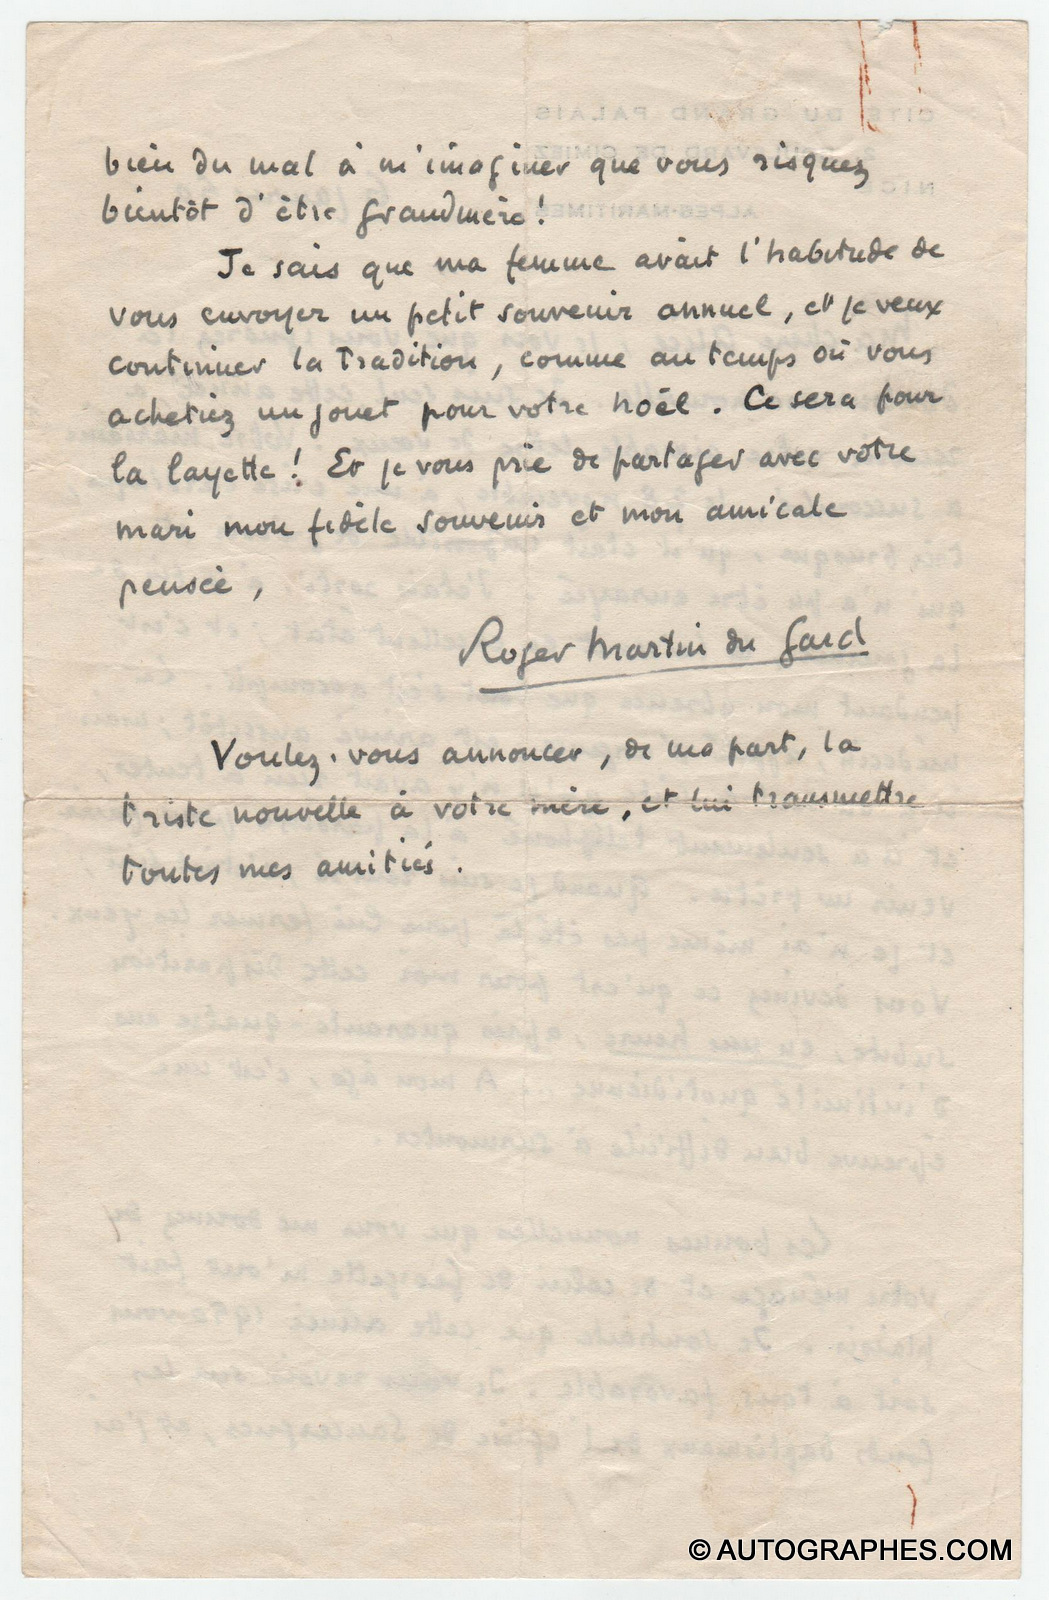 bien du mal à m'imaginer que vous risquez
bientôt d'être grandmère !
Je sais que ma femme avait l'habitude de
vous envoyer un petit souvenir annuel, et je veux
continuer la tradition, comme au temps où vous
achetiez un jouet pour votre noël. Ce sera pour
la layette ! Et je vous prie de partager avec votre
mari mon fidèle souvenir et mon amicale
pensée,
Roger Martin du Gard
Voulez-vous annoncer, de ma part, la
triste nouvelle à votre mère, et lui transmettre
toutes mes amitiés.
© AUTOGRAPHES.COM